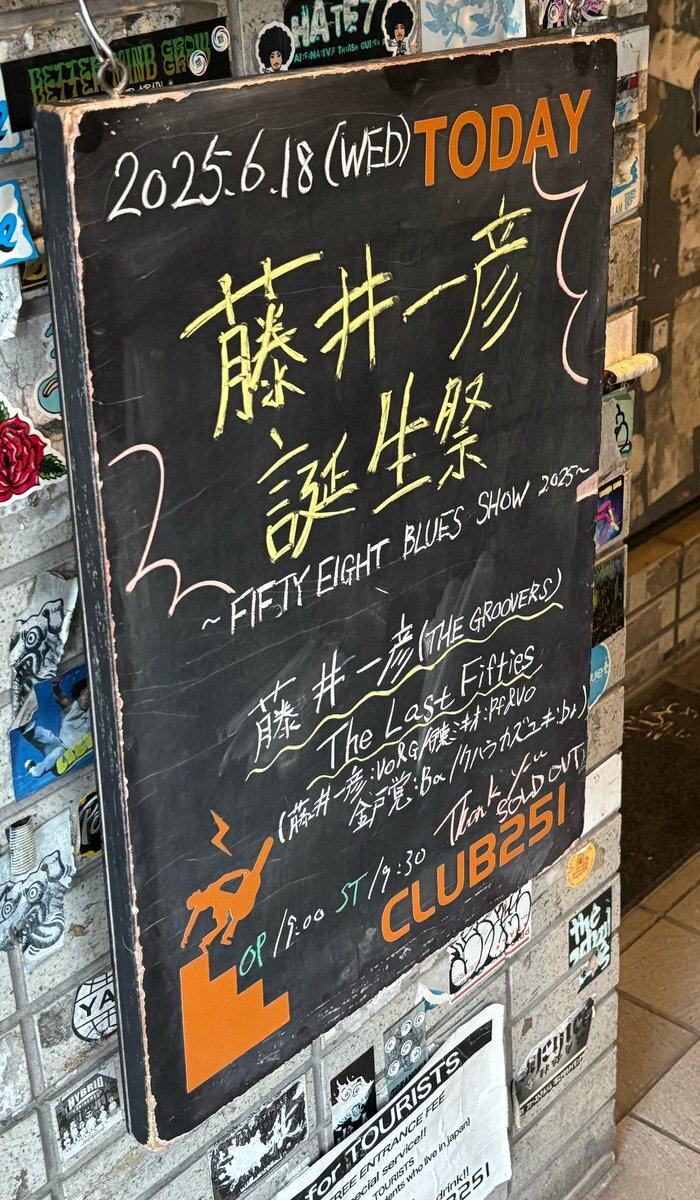 BETTER MIND GROW
HATE7
ALTERNATIVE THRASH GUITER
2025.6.18(WED) TODAY
藤井一彦
誕生祭
~FIFTY EIGHT BLUES SHOW 2025~
藤井一彦(THE GROOVERS)
The Last Fifties
(藤井一彦:Vo&G/伊東ミキオ:Pf&Vo
金戸覚:Ba/クハラカズユキ:Dr)
Thank You
SOLD OUT
OP/19:00 ST/19:30
CLUB251
YA
HYBRID
for TOURISTS
FREE ENTRANCE FEE
special service!!
TOURISTS
who live in japan)
drink!!
251